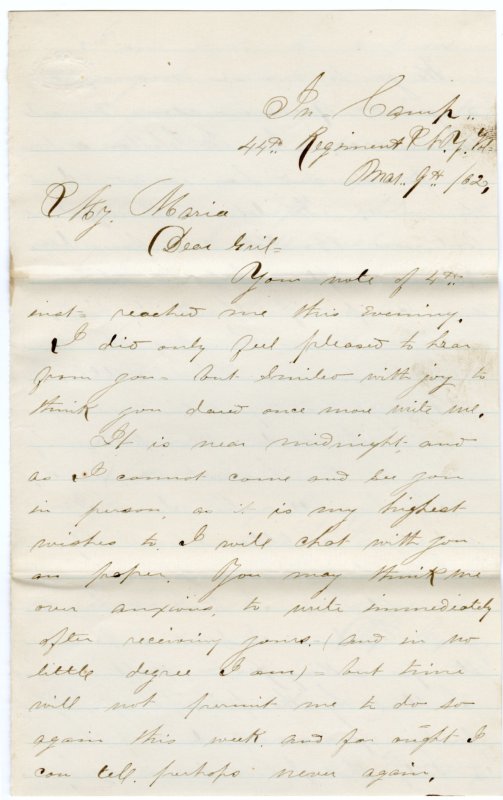 In Camp,,
44th Regiment N.Y.
Mar. 9th /62,
My Maria
Dear Girl=
Your note of 4th
inst= reached me this Evening.
I did only feel pleased to hear
from you = but Smiled with joy to
think you dared once more write me.
It is near midnight, and
as I cannot come and see you
in person, as it is my highest
wishes to. I will chat with you
on paper. You may think me
over anxious, to write immediately
after receiving yours. (and in no
little degree I am) = but time
will not permit me to do so
again this week. and for ought I
can tell. perhaps never again.